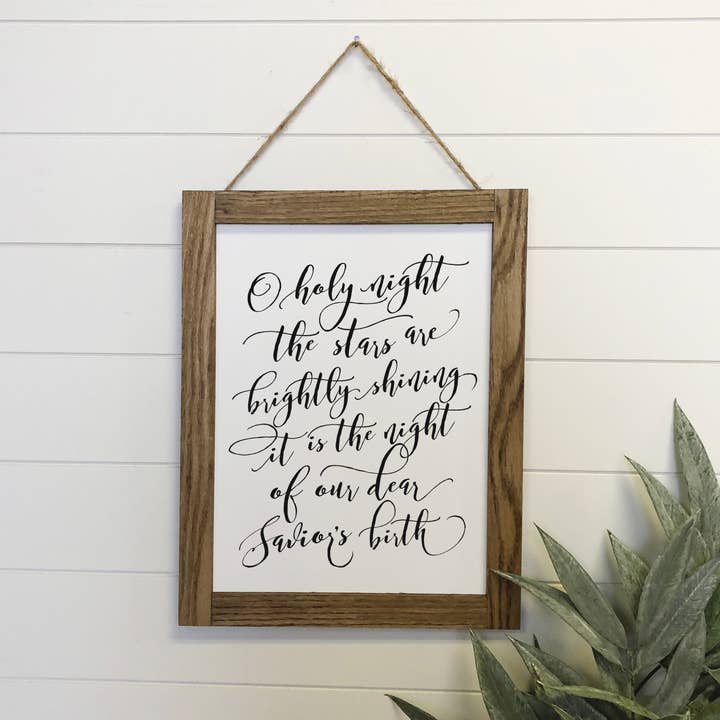 O holy night
the stars are
brightly shining
it is the night
of our dear
Savior's birth